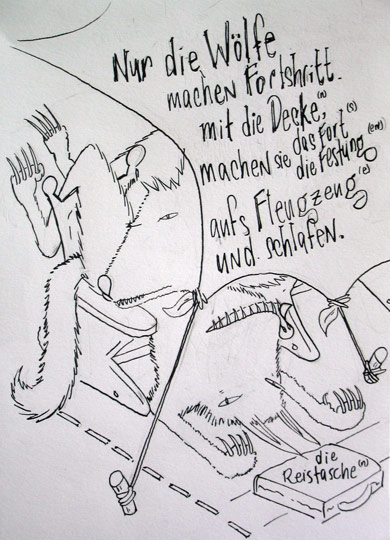 Nur die Wölfe
machen Fortshritt.
mit die Decke,(n)
machen sie das Fort(s)
die Festung(en)
aufs Fleugzeug(e)
und schlafen.
die
Reistasche(n)